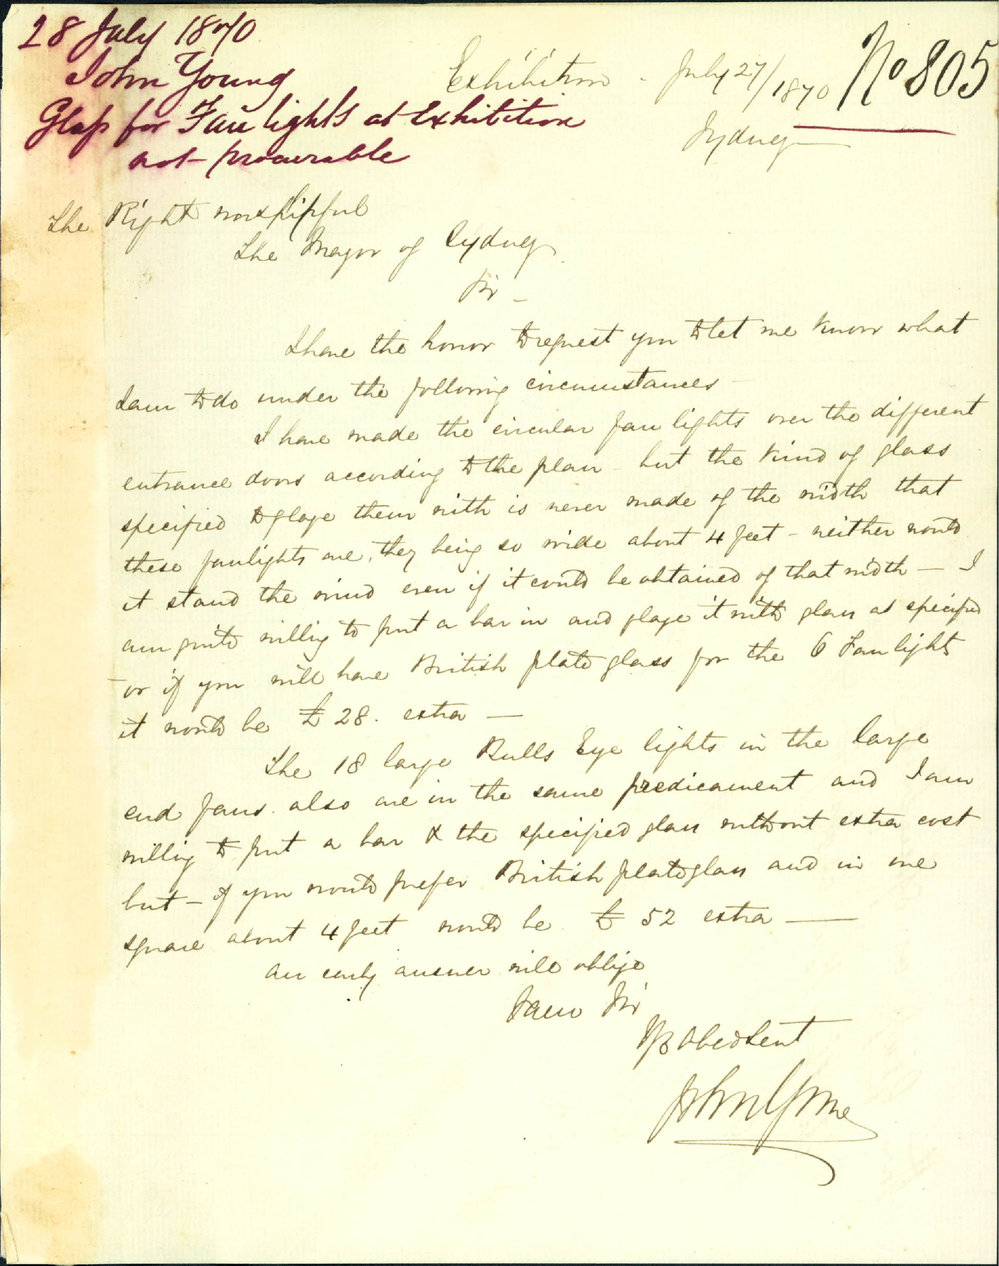 28 July 1870
John Young
Glass for Fan lights at Exhibition
not procurable
No 805
Exhibition - July 27/1870
Sydney
The Right worshipful
The Mayor of Sydney
Sir -
I have the honor to request you to let me know what
I am to do under the following circumstances -
I have made the circular fan lights over the different
entrance doors according to the plan - but the kind of glass
specified to glaze them with is never made of the width that
these fanlights are, they being so wide about 4 feet - neither would
it stand the wind even if it could be obtained of that width - I
am quite willing to put a bar in and glaze it with glass as specified
- or if you will have British plate glass for the 6 Fan lights
it would be £ 28. extra -
The 18 large Bulls Eye lights in the large
end fans. also are in the same predicament and I am
willing to put a bar & the specified glass without extra cost
but - if you would prefer British plate glass and in one
square about 4 feet would be £ 52 extra -
An early answer will oblige
I am Sir
Yr Obedient
John Young